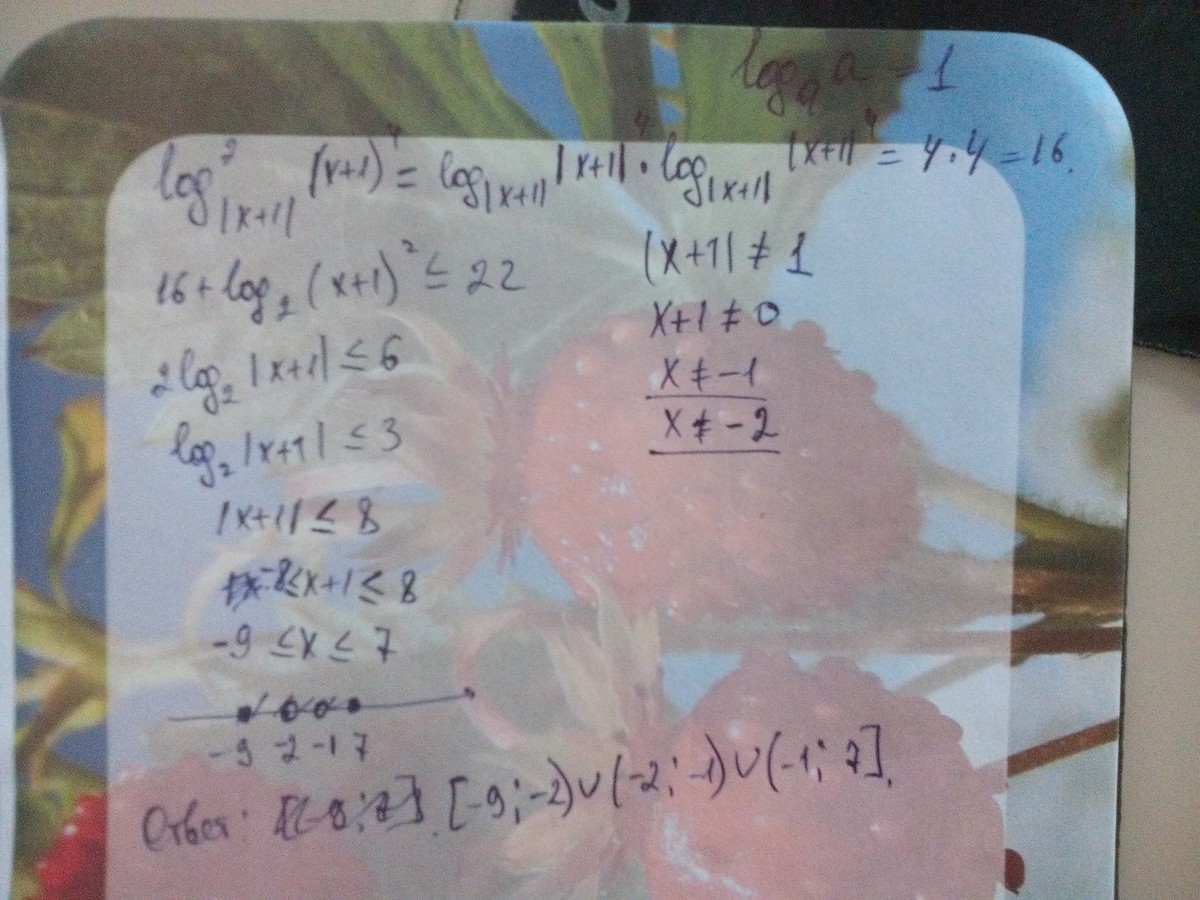 logₐ a = 1
log²_|x+1| (x+1)⁴ = log_|x+1| |x+1|⁴ · log_|x+1| |x+1|⁴ = 4·4 = 16.
16 + log₂ (x+1)² ≤ 22
2 log₂ |x+1| ≤ 6
log₂ |x+1| ≤ 3
|x+1| ≤ 8
-8 ≤ x+1 ≤ 8
-9 ≤ x ≤ 7
|x+1| ≠ 1
x+1 ≠ 0
x ≠ -1
x ≠ -2
-9 -2 -1 7
Ответ: [-9; -2) ∪ (-2; -1) ∪ (-1; 7].